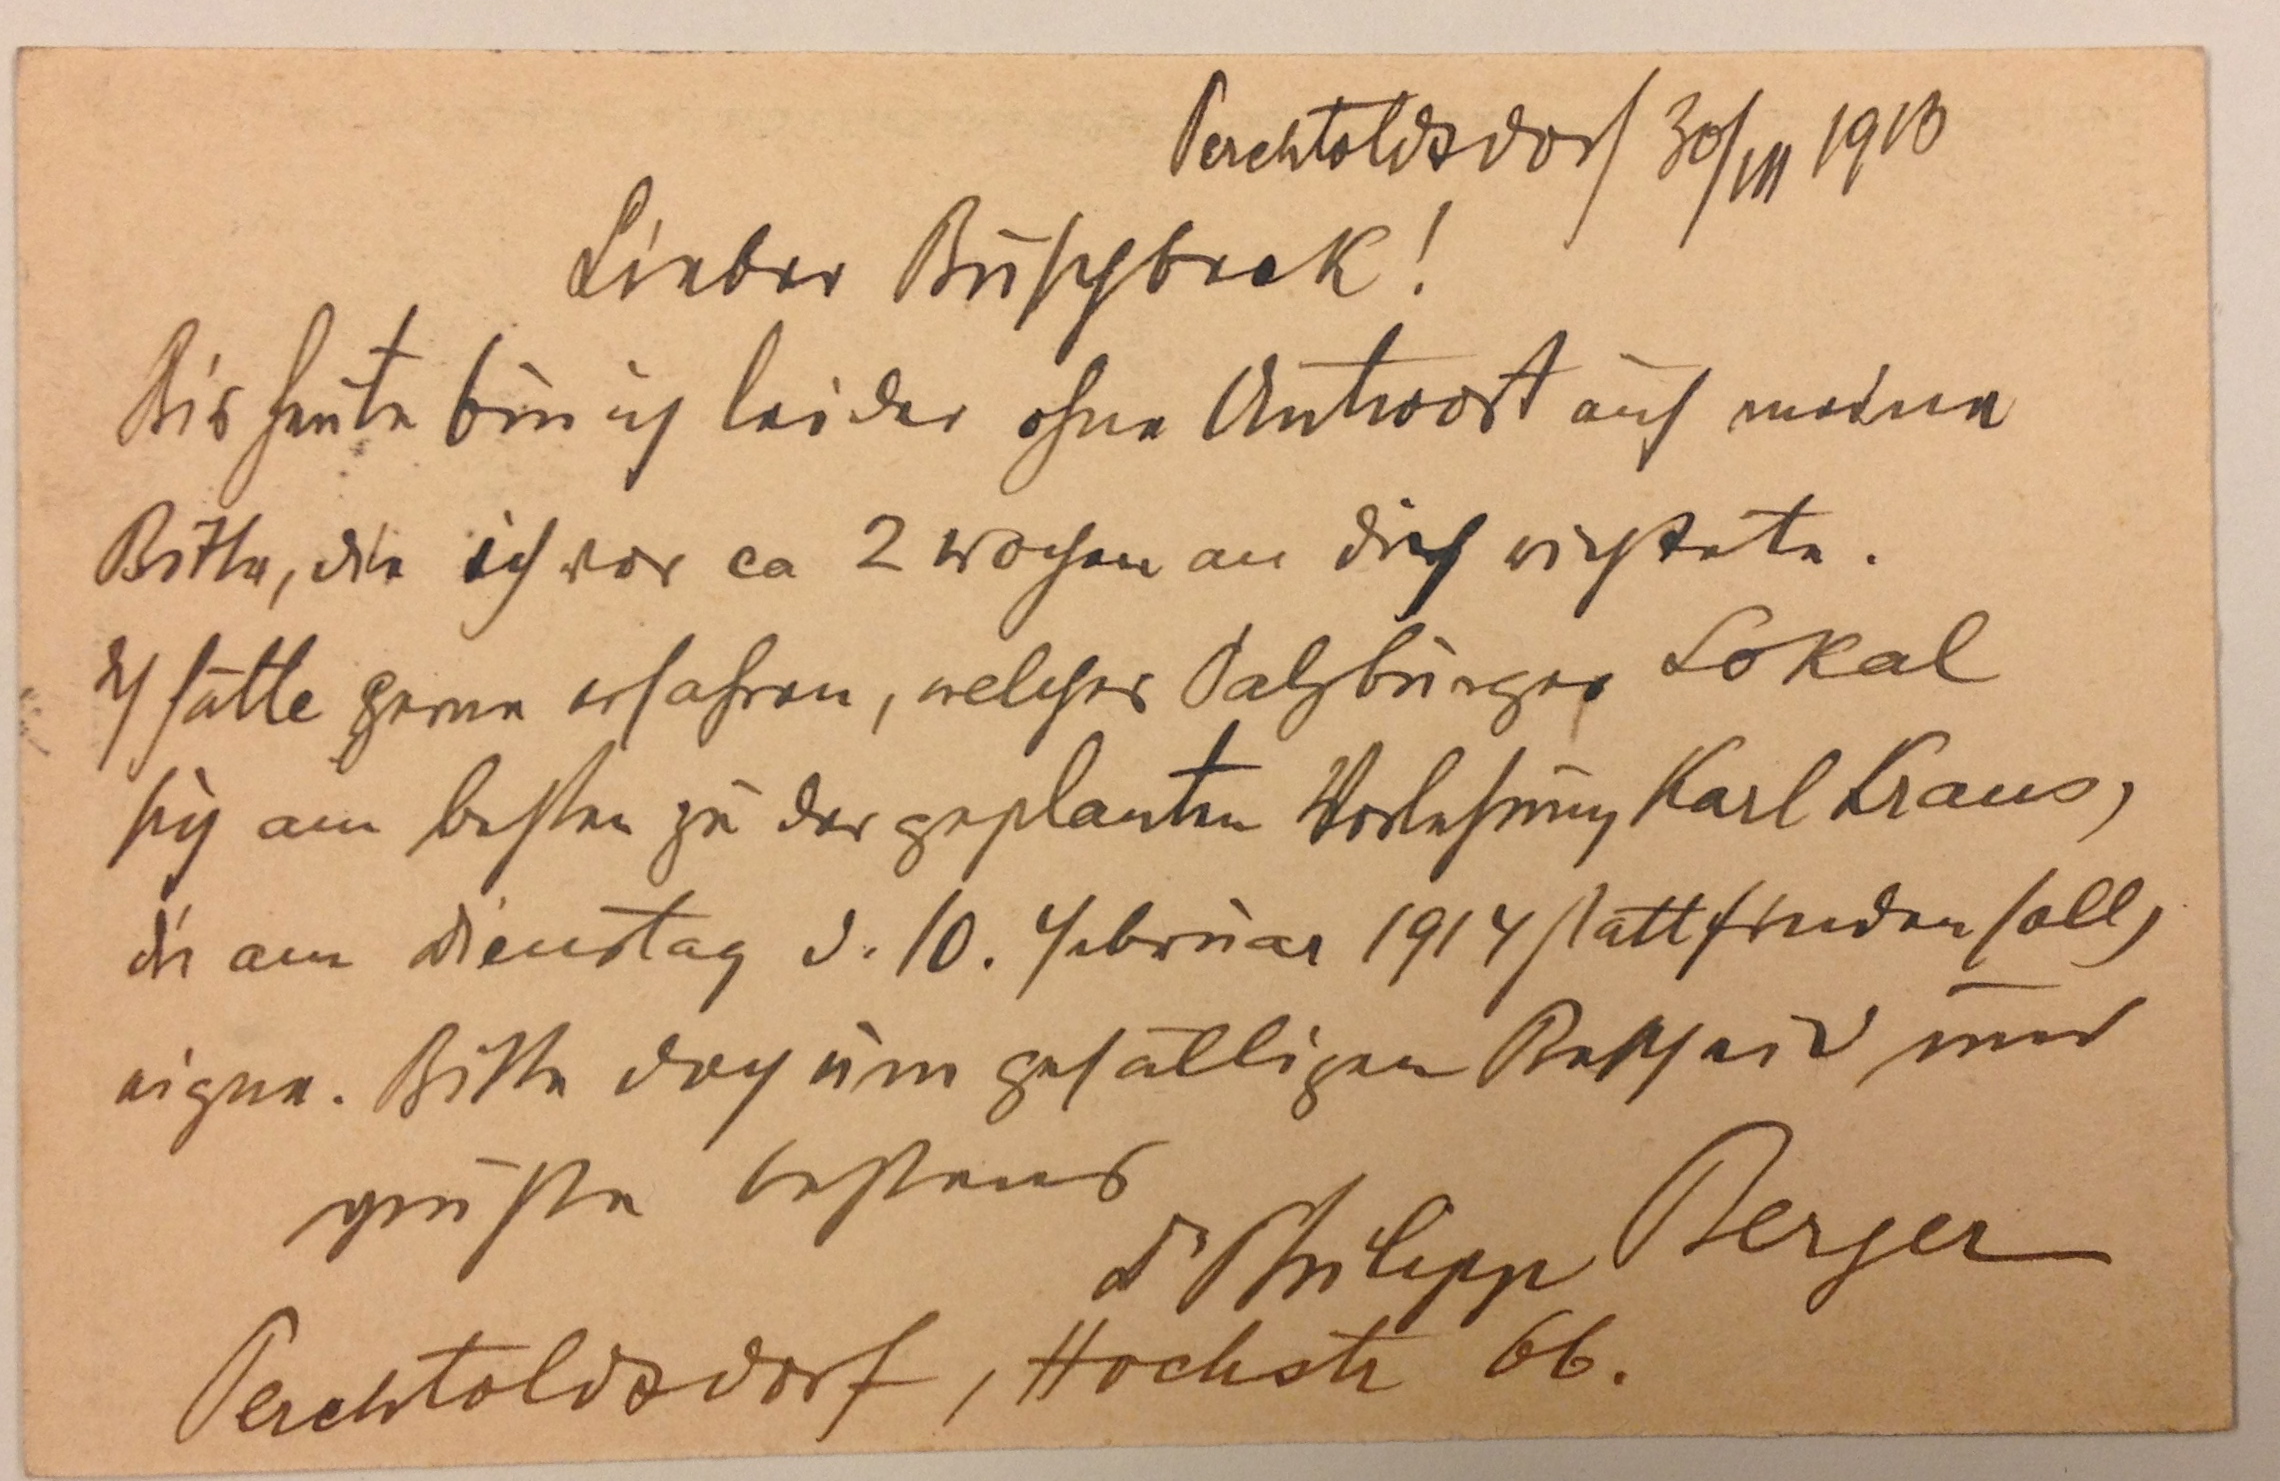 Perchtoldsdorf 30/XII 1913
Lieber Buschbeck!
Bis heute bin ich leider ohne Antwort auf meine
Bitte, die ich vor ca 2 Wochen an dich richtete.
Ich hätte gerne erfahren, welches Salzburger Lokal
sich am besten zu der geplanten Vorlesung Karl Kraus,
die am Dienstag d. 10. Februar 1914 stattfinden soll,
eigne. Bitte doch um gefälligen Bescheid und
grüße bestens
Dr Philipp Berger
Perchtoldsdorf, Hochstr 66.